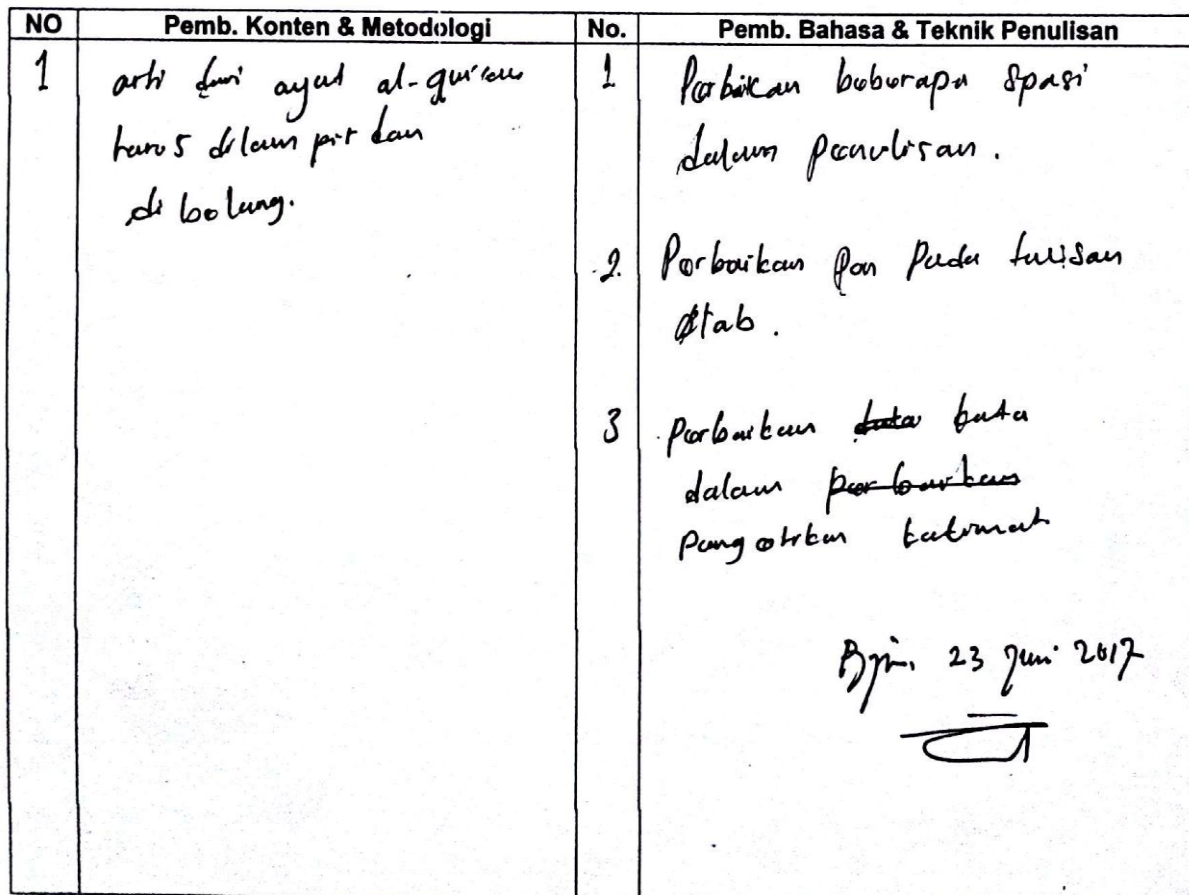 NO Pemb. Konten & Metodologi No. Pemb. Bahasa & Teknik Penulisan
1 arti dari ayat al-qur'an
harus dilampirkan
di belang.
1 Perbaikan beberapa spasi
dalam penulisan.
2. Perbaikan pon Pada tulisan
3 perbaikan kata
dalam
pengetikan kalimat
Bjm, 23 Juni 2017